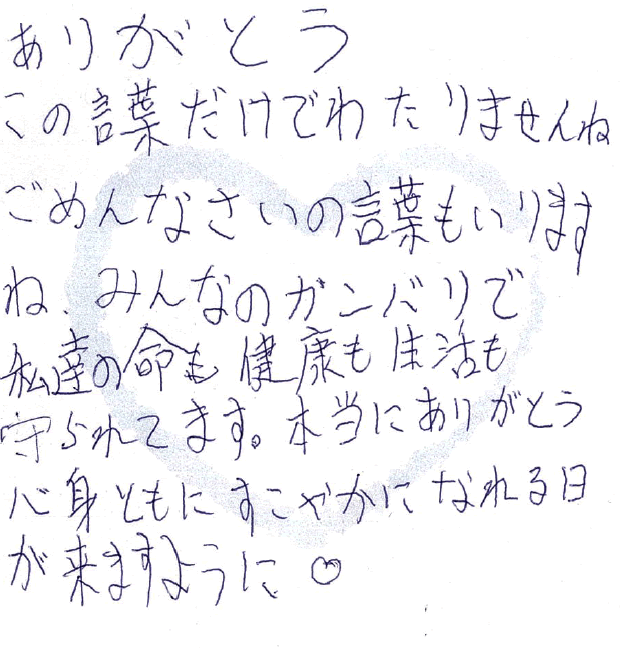 ありがとう
この言葉だけでわたりませんね
ごめんなさいの言葉もいります
ね、みんなのガンバリで
私達の命も健康も生活も
守られてます。本当にありがとう
心身ともにすこやかになれる日
が来ますように♡